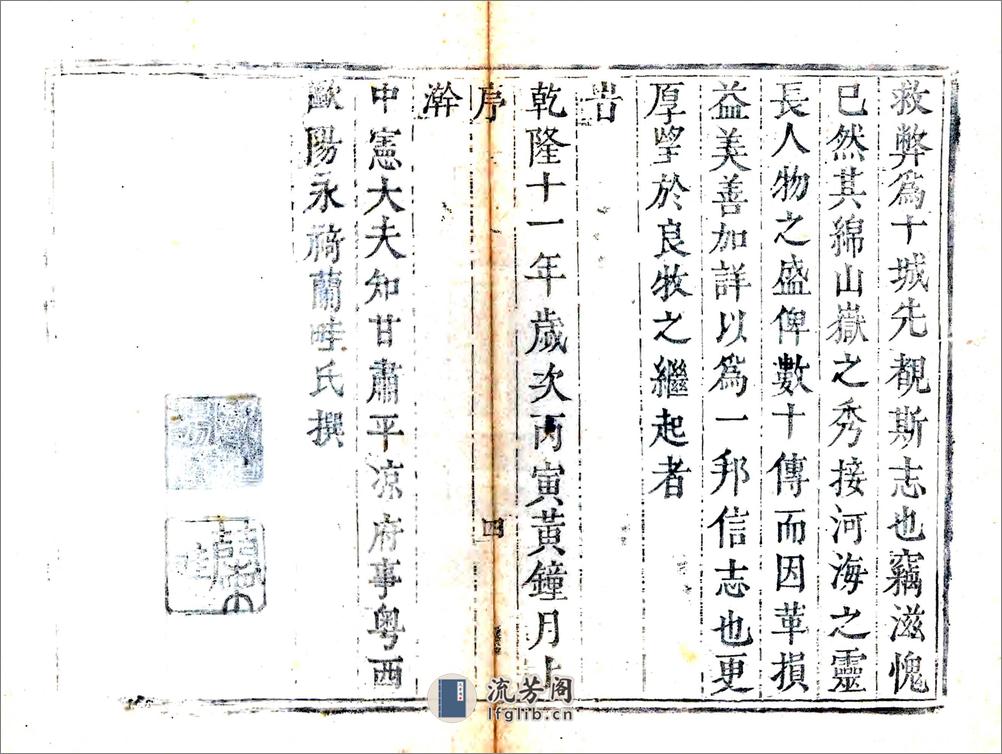 救弊爲十城先覩斯志也竊滋愧
已然其綿山嶽之秀接河海之靈
長人物之盛俾數十傳而因革損
益美善加詳以爲一邦信志也更
厚望於良牧之繼起者
旹
乾隆十一年歲次丙寅黃鐘月上
澣
序
四
中憲大夫知甘肅平凉府事粤西
歐陽永裿蘭畦氏撰
流芳阁
lfglib.cn